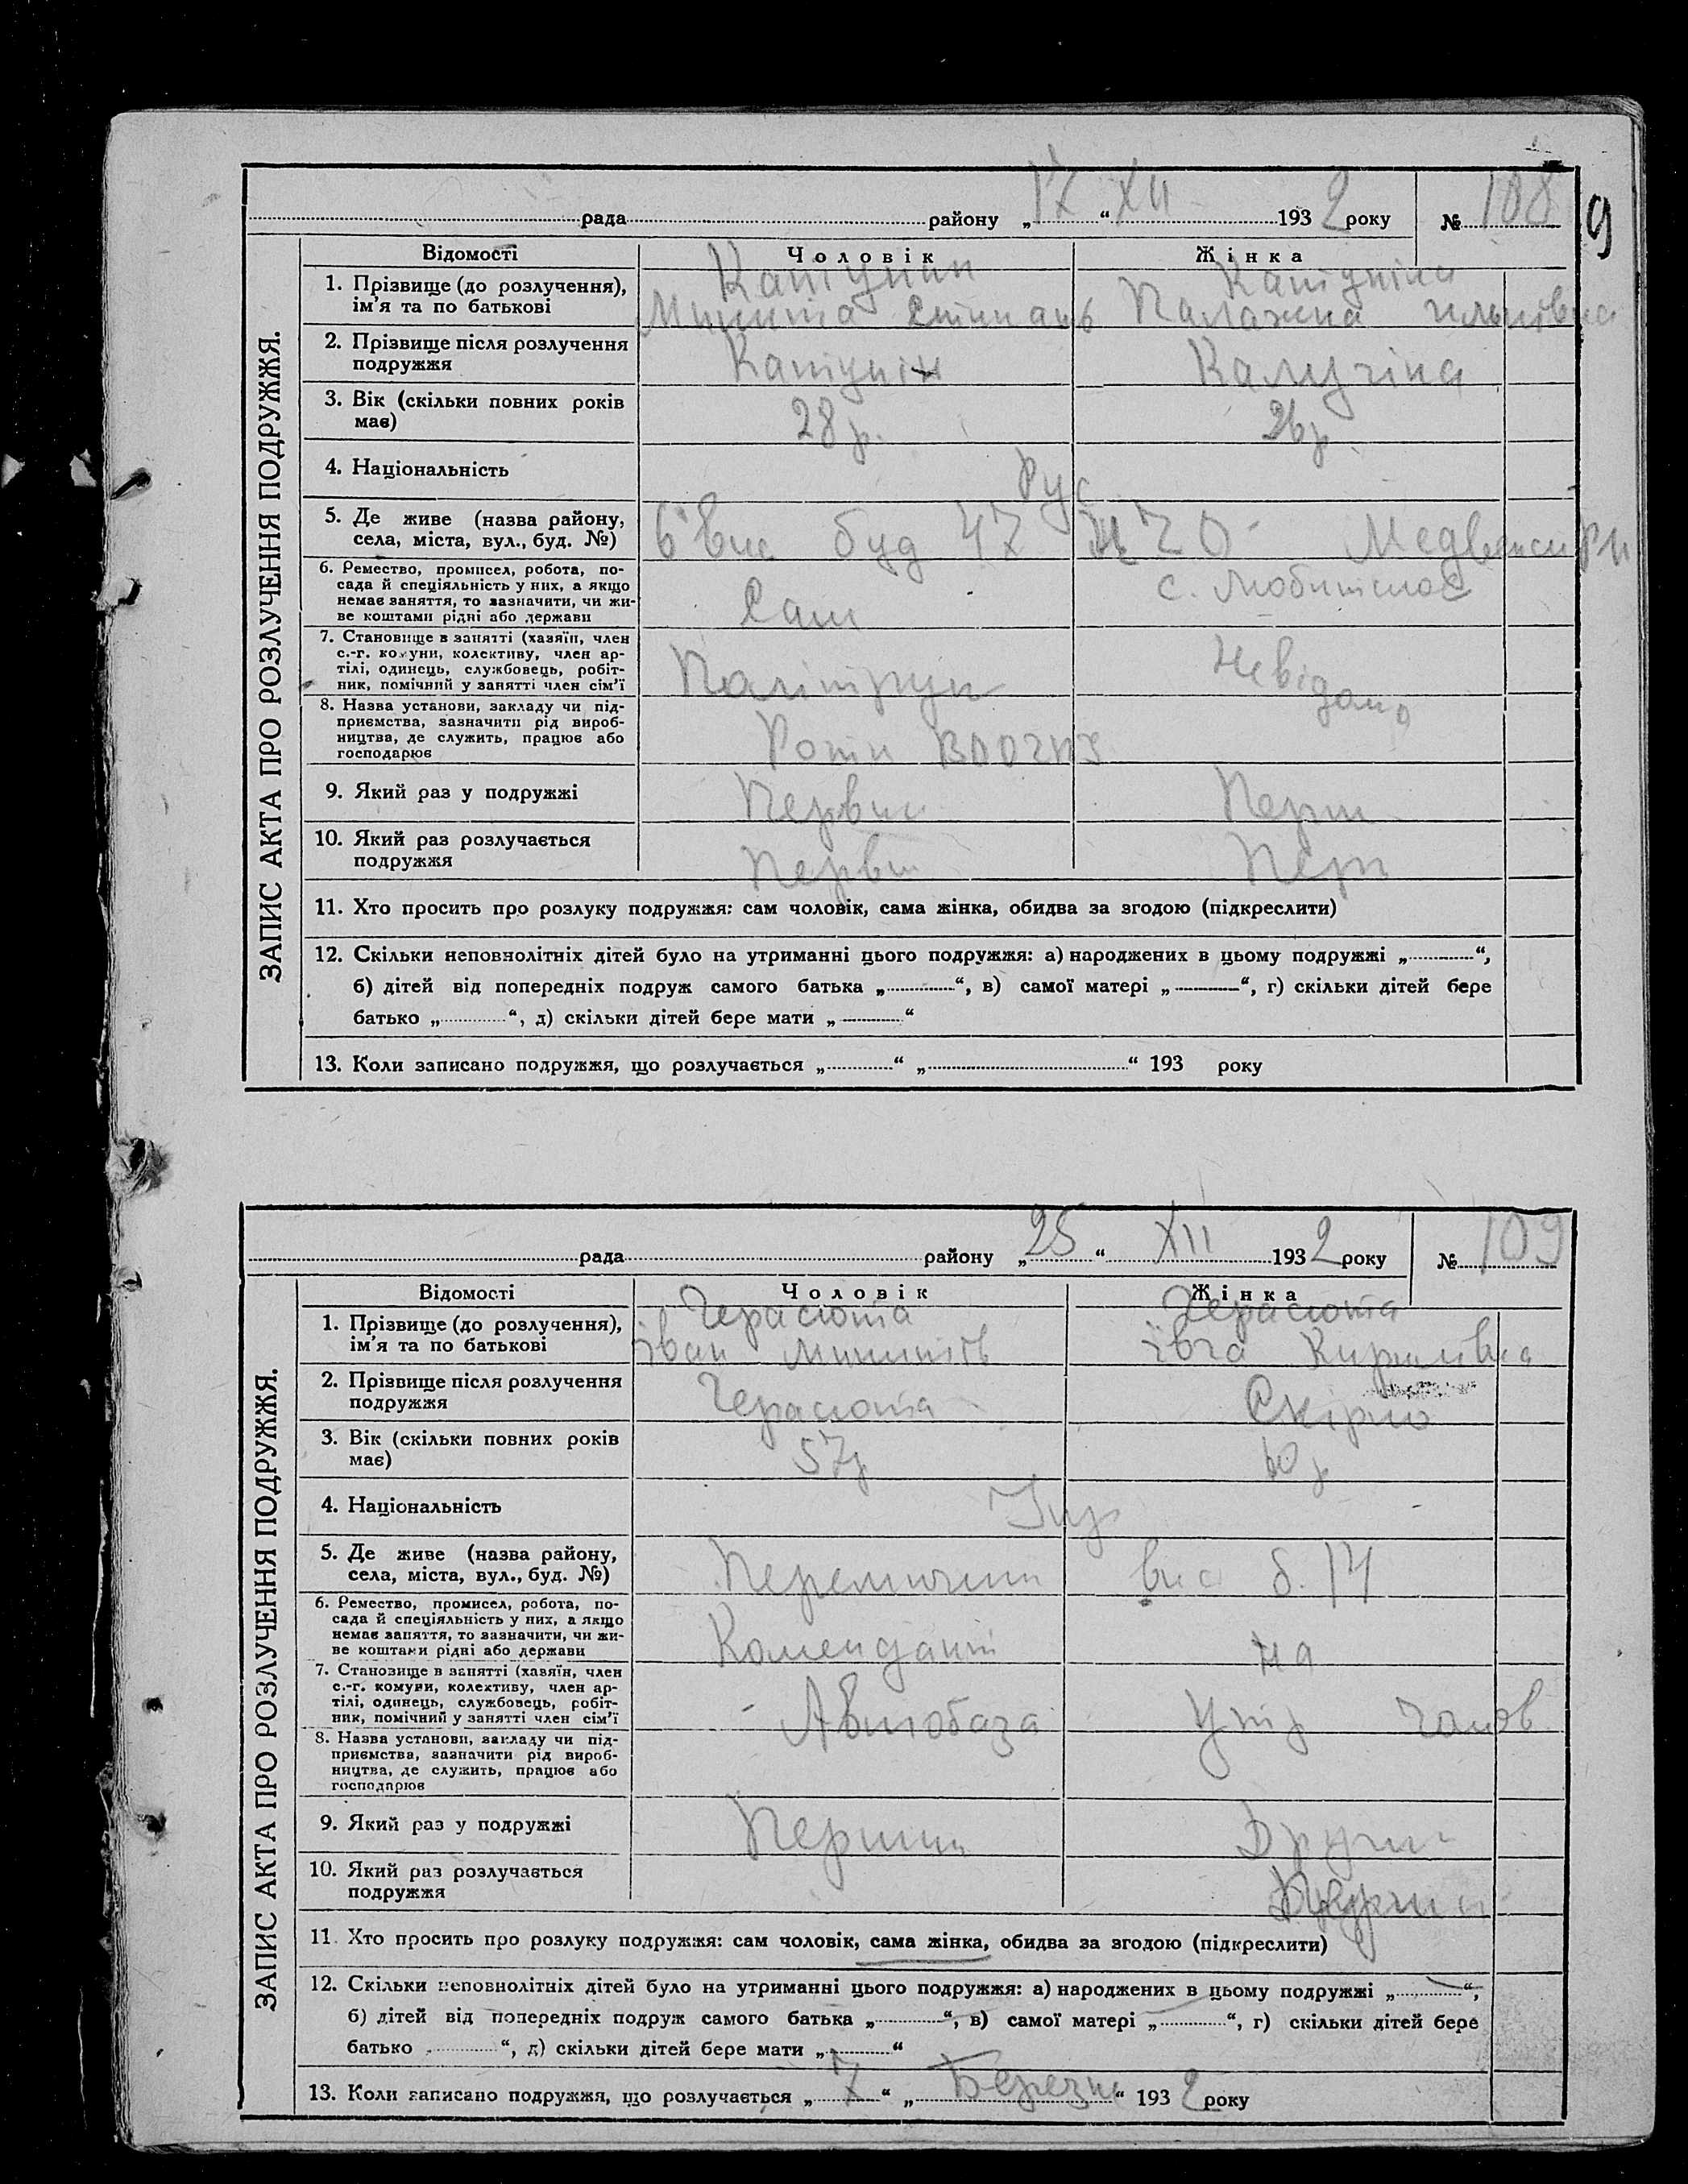 9
ЗАПИС АКТА ПРО РОЗЛУЧЕННЯ ПОДРУЖЖЯ.
рада району „17“ XII 1932 року № 108
Відомості Чоловік Жінка
1. Прізвище (до розлучення), ім’я та по батькові
Палажка
2. Прізвище після розлучення подружжя
Калугіна
3. Вік (скільки повних років має) 28 р. 26 р
4. Національність Рус
5. Де живе (назва району, села, міста, вул., буд. №) буд 47
6. Ремество, промисел, робота, посада й спеціяльність у них, а якщо немає заняття, то зазначити, чи живе коштами рідні або держави
с.
7. Становище в занятті (хазяїн, член с.-г. комуни, колективу, член артілі, одинець, службовець, робітник, помічний у занятті член сім’ї
Політрук Невідомо
8. Назва установи, закладу чи підприємства, зазначити рід виробництва, де служить, працює або господарює
Роти
9. Який раз у подружжі Перш
10. Який раз розлучається подружжя Перш
11. Хто просить про розлуку подружжя: сам чоловік, сама жінка, обидва за згодою (підкреслити)
12. Скільки неповнолітніх дітей було на утриманні цього подружжя: а) народжених в цьому подружжі „ “,
б) дітей від попередніх подруж самого батька „ “, в) самої матері „ “, г) скільки дітей бере
батько „ “, д) скільки дітей бере мати „ “
13. Коли записано подружжя, що розлучається „ “ „ “ 193 року
ЗАПИС АКТА ПРО РОЗЛУЧЕННЯ ПОДРУЖЖЯ.
рада району „25“ XII 1932 року № 109
Відомості Чоловік Жінка
1. Прізвище (до розлучення), ім’я та по батькові
Герасюта Герасюта
Іван Кирилівна
2. Прізвище після розлучення подружжя
Герасюта
3. Вік (скільки повних років має) 57 р
4. Національність Укр
5. Де живе (назва району, села, міста, вул., буд. №) б. 14
6. Ремество, промисел, робота, посада й спеціяльність у них, а якщо немає заняття, то зазначити, чи живе коштами рідні або держави
Комендант на
7. Становище в занятті (хазяїн, член с.-г. комуни, колективу, член артілі, одинець, службовець, робітник, помічний у занятті член сім’ї
Автобаза Утр чолов
8. Назва установи, закладу чи підприємства, зазначити рід виробництва, де служить, працює або господарює
9. Який раз у подружжі Перший Други
10. Який раз розлучається подружжя
11. Хто просить про розлуку подружжя: сам чоловік, сама жінка, обидва за згодою (підкреслити)
12. Скільки неповнолітніх дітей було на утриманні цього подружжя: а) народжених в цьому подружжі „ “,
б) дітей від попередніх подруж самого батька „ “, в) самої матері „ “, г) скільки дітей бере
батько „ “, д) скільки дітей бере мати „ “
13. Коли записано подружжя, що розлучається „7“ „Березня“ 1932 року